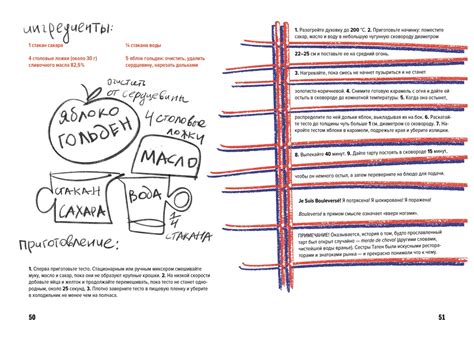 ингредиенты:
1 стакан сахара
¾ стакана воды
4 столовые ложки (около 30 г)
сливочного масла 82,5%
5 яблок гольден: очистить, удалить
сердцевину, нарезать дольками
очистить
от сердцевины
ЯБЛОКО
ГОЛЬДЕН
4 столовые
ложки
МАСЛО
СТАКАН
САХАРА
ВОДА
3/4
СТАКАНА
приготовление:
1. Сперва приготовьте тесто. Стационарным или ручным миксером смешивайте
муку, масло и сахар, пока они не образуют крупные крошки. 2. На низкой скорости
добавьте яйца и желток и продолжайте перемешивать, пока тесто не станет одно-
родным, около 25 секунд. 3. Плотно заверните тесто в пищевую пленку и уберите
в холодильник не менее чем на полчаса.
50
1. Разогрейте духовку до 200 °С. 2. Приготовьте начинку: поместите
сахар, масло и воду в небольшую чугунную сковороду диаметром
22–25 см и поставьте ее на средний огонь.
3. Нагревайте, пока смесь не начнет пузыриться и не станет
золотисто-коричневой. 4. Снимите готовую карамель с огня и дайте ей
остыть в сковороде до комнатной температуры. 5. Когда она остынет,
распределите по ней дольки яблок, выкладывая их на ребро. 6. Раскатай-
те тесто до толщины чуть больше 1 см, диаметром со сковороду. 7. На-
кройте тестом яблоки в карамели, подрежьте края и уберите излишки.
8. Выпекайте 40 минут. 9. Дайте тарту постоять в сковороде 15 минут,
чтобы он немного остыл, а затем переверните на блюдо для подачи.
Je Suis Bouleversé! Я потрясена! Я шокирована! Я поражена!
Bouleversé в прямом смысле означает «вверх ногами».
ПРИМЕЧАНИЕ: Оказывается, история о том, будто прославленный
тарт был открыт случайно — merde de cheval (другими словами,
чистейшей воды вранье). Сестры Татен были искусными рестора-
торами и знатоками рынка — и прекрасно понимали, что делают.
51